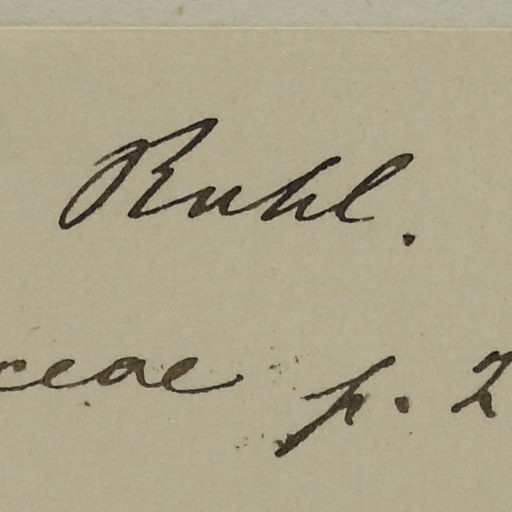 Ruhl.
ceae p. 2